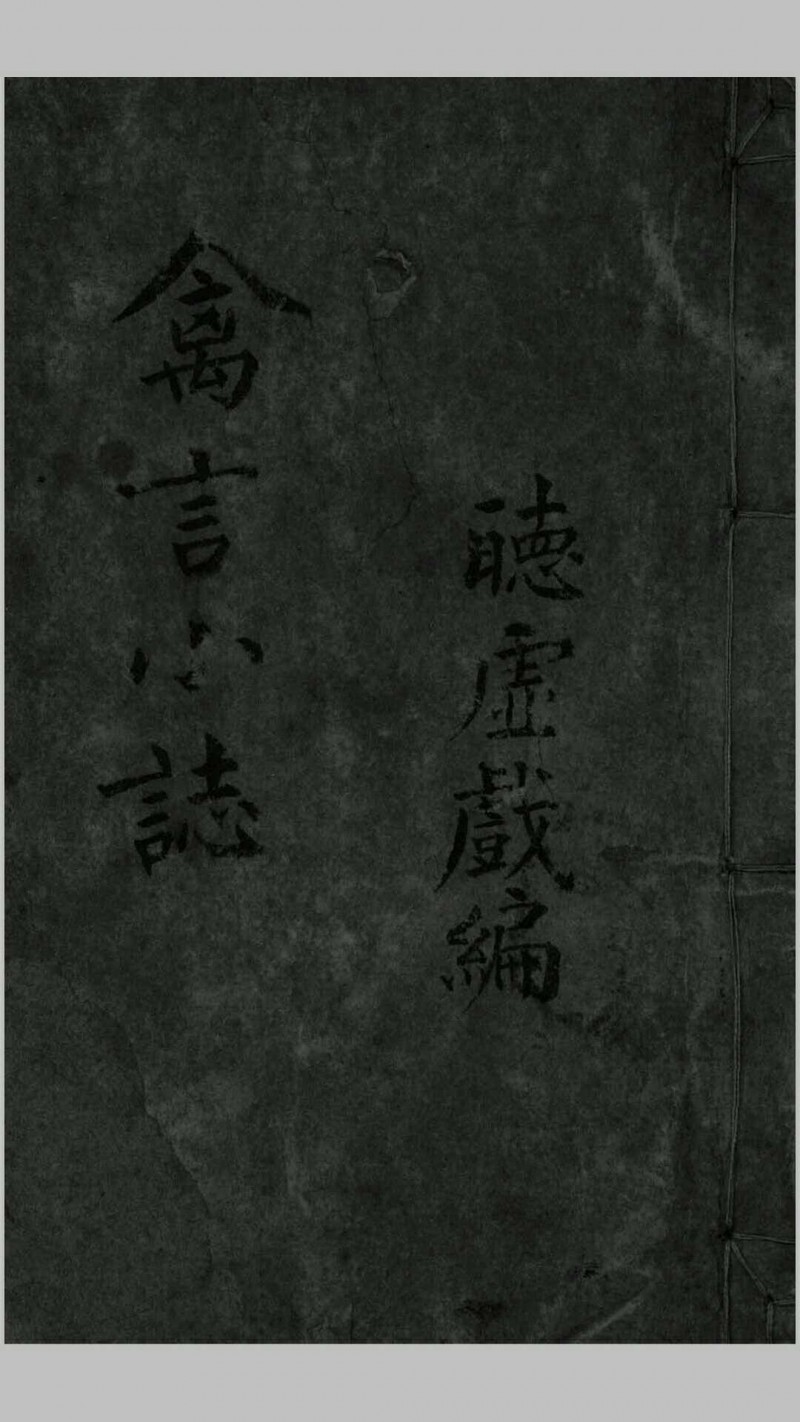 聽虛戲編
禽言小誌